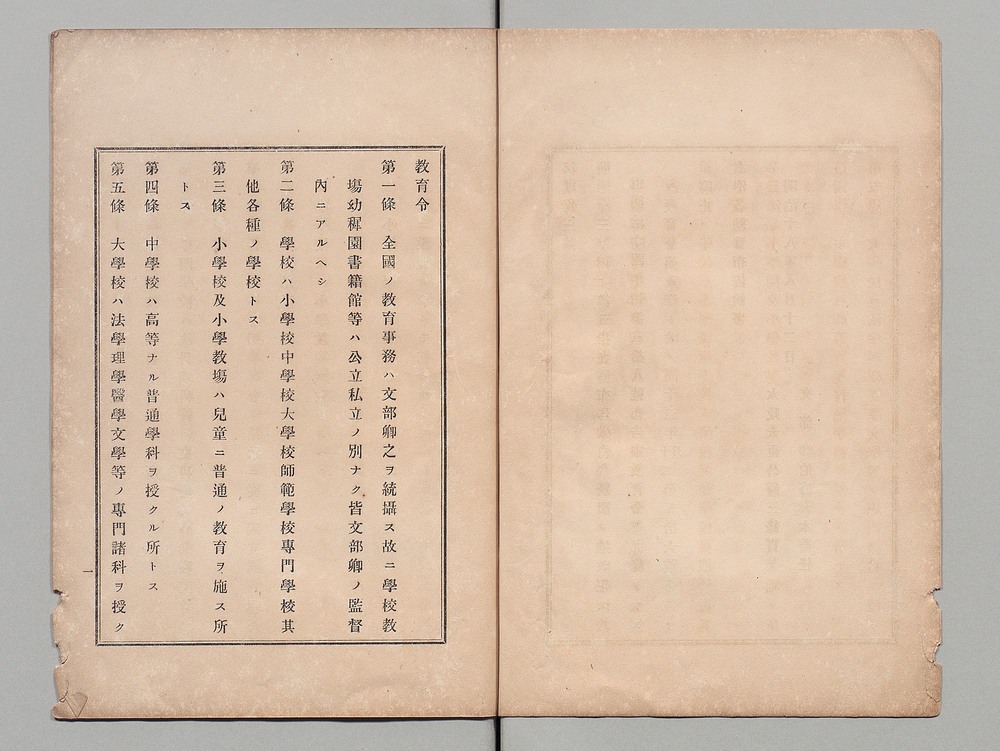 教育令
第一條　全國ノ教育事務ハ文部卿之ヲ統攝ス故ニ學校教
塲幼穉園書籍館等ハ公立私立ノ別ナク皆文部卿ノ監督
內ニアルヘシ
第二條　學校ハ小學校中學校大學校師範學校專門學校其
他各種ノ學校トス
第三條　小學校及小學教塲ハ兒童ニ普通ノ教育ヲ施ス所
トス
第四條　中學校ハ高等ナル普通學科ヲ授クル所トス
第五條　大學校ハ法學理學醫學文學等ノ專門諸科ヲ授ク
一